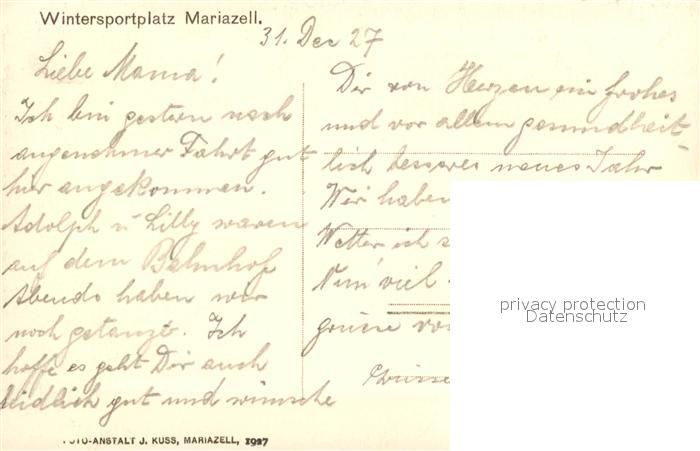 Wintersportplatz Mariazell.
31. Dez 27
Liebe Mama!
Ich bin gestern nach
angenehmer Fahrt gut
hier angekommen.
Adolph u. Lilly waren
auf dem Bahnhof
Abends haben wir
noch getanzt. Ich
hoffe es geht Dir auch
leidlich gut und wünsche
Dir von Herzen ein frohes
und vor allem gesundheit-
lich besseres neues Jahr
Wir haben
Wetter ich
Nun viel
grüsse von
privacy protection
Datenschutz
FOTO-ANSTALT J. KUSS, MARIAZELL, 1927